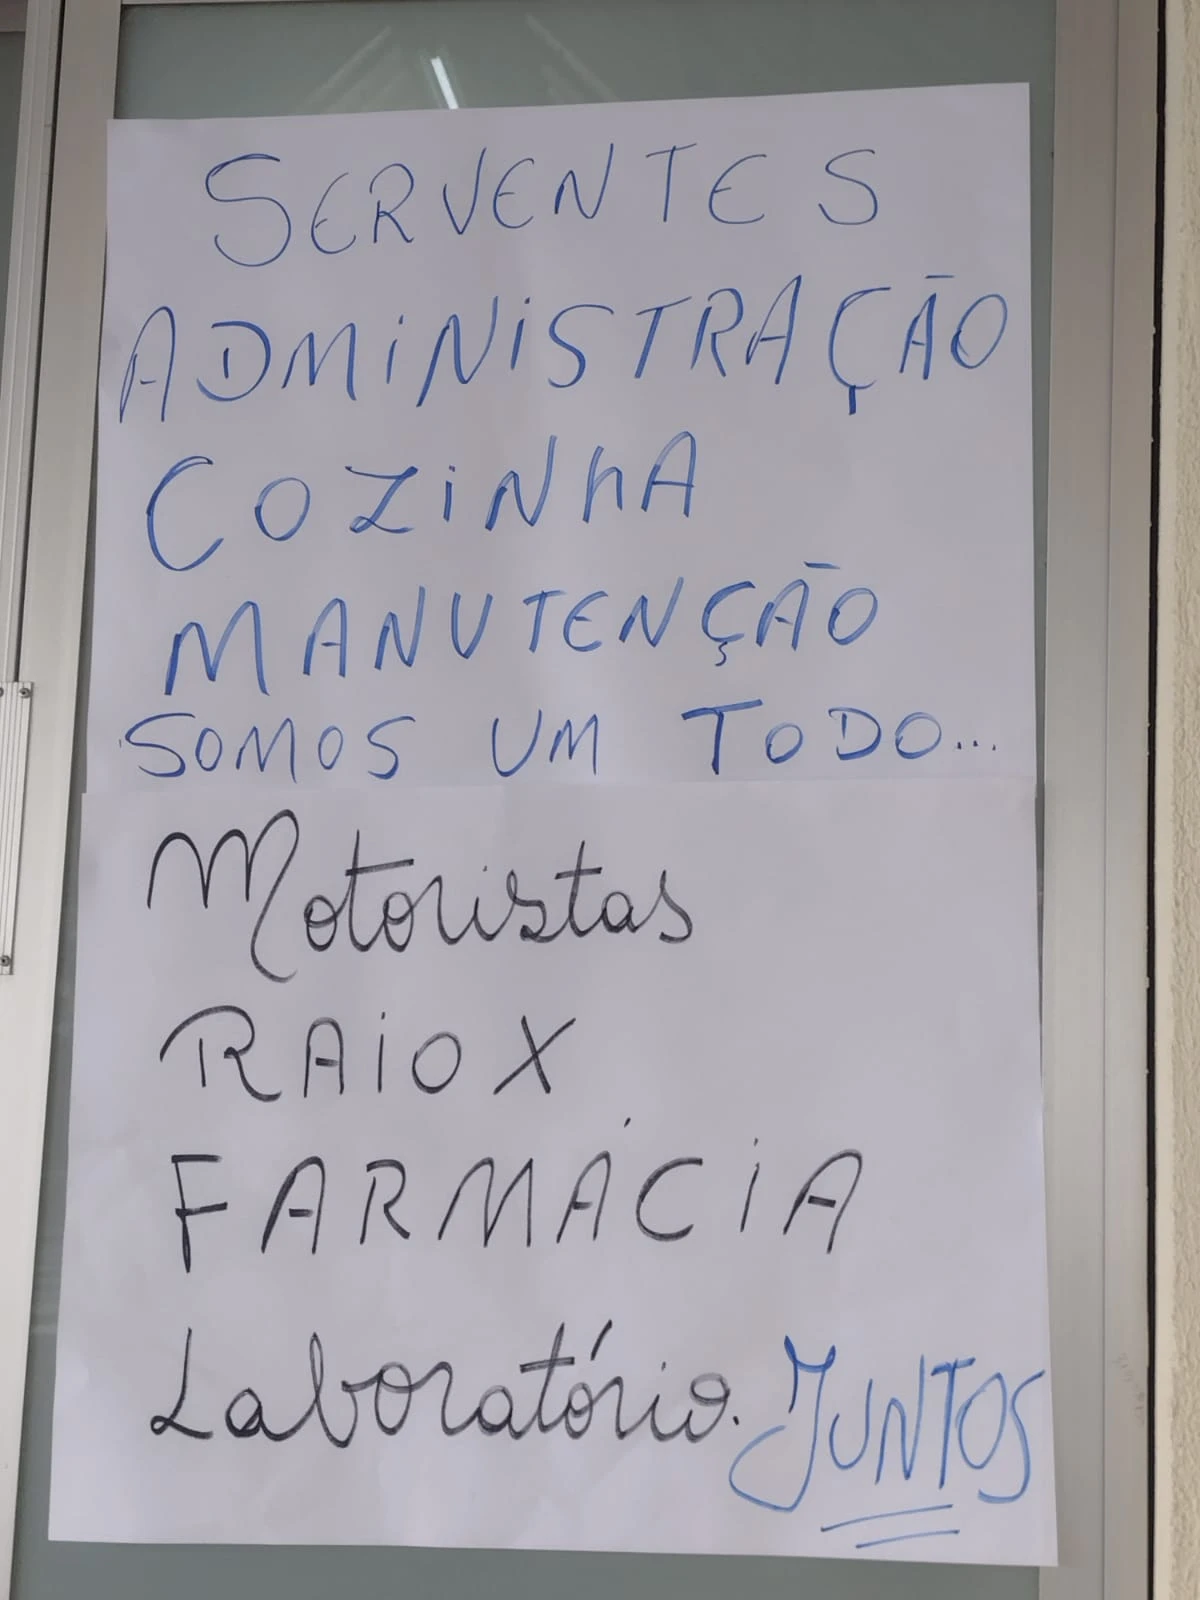 SERVENTES
ADMINISTRAÇÃO
COZINHA
MANUTENÇÃO
SOMOS UM TODO...
Motoristas
RAIO X
FARMÁCIA
Laboratório.
JUNTOS